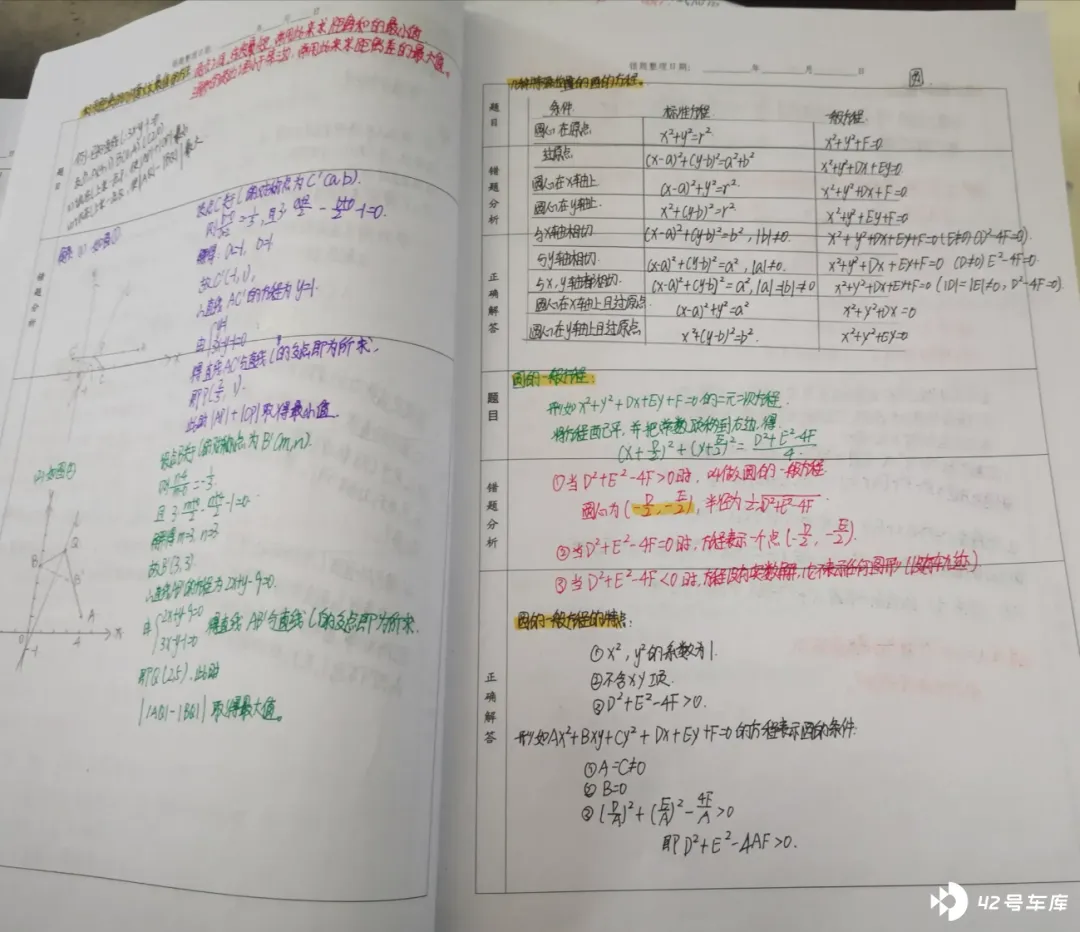 错题整理日期: 年 月 日
题目
解: (1) 如图①
设点C关于l的对称点为C'(a,b).
得直线AC'与直线l的交点即为所求.
此时|AP|+|CP|取得最小值.
错题分析
(2) 如图②
设点B关于l的对称点为B'(m,n).
解得m=3 n=3
故B'(3,3).
∴直线AB'的方程为2x+y-9=0.
由{2x+y-9=0
3x-y-1=0 得直线AB'与直线l的交点即为所求.
即Q(2,5), 此时
||AQ|-|BQ|| 取得最大值。
错题整理日期: 年 月 日
圆
几种特殊位置的圆的方程.
题目
条件 标准方程 一般方程
圆心在原点 x²+y²=r² x²+y²+F=0
过原点 (x-a)²+(y-b)²=a²+b² x²+y²+Dx+Ey=0
错题分析
圆心在x轴上 (x-a)²+y²=r² x²+y²+Dx+F=0
圆心在y轴上 x²+(y-b)²=r² x²+y²+Ey+F=0
与x轴相切 (x-a)²+(y-b)²=b², |b|≠0 x²+y²+Dx+Ey+F=0 (E≠0) (D²-4F=0).
正确解答
与y轴相切 (x-a)²+(y-b)²=a², |a|≠0. x²+y²+Dx+Ey+F=0 (D≠0) E²-4F=0.
与x,y轴都相切. (x-a)²+(y-b)²=a², |a|=|b|≠0 x²+y²+Dx+Ey+F=0 (|D|=|E|≠0, D²-4F=0).
圆心在x轴上且过原点 (x-a)²+y²=a² x²+y²+Dx=0
圆心在y轴上且过原点 x²+(y-b)²=b². x²+y²+Ey=0
圆的一般方程:
题目
形如x²+y²+Dx+Ey+F=0的二元二次方程.
将方程配方, 并把常数项移到右边, 得
(x+D/2)²+(y+E/2)²=(D²+E²-4F)/4.
错题分析
①当D²+E²-4F>0时, 叫做圆的一般方程.
圆心为(-D/2,-E/2), 半径为1/2√D²+E²-4F
②当D²+E²-4F=0时, 方程表示一个点(-D/2,-E/2).
③当D²+E²-4F<0时, 方程没有实数解, 它不表示任何图形
圆的一般方程的特点:
①x²,y²的系数为1.
②不含xy项.
③D²+E²-4F>0.
正确解答
形如Ax²+Bxy+Cy²+Dx+Ey+F=0的方程表示圆的条件:
①A=C≠0
②B=0
③(D/A)²+(E/A)²-4F/A>0
即D²+E²-4AF>0.
42号车库